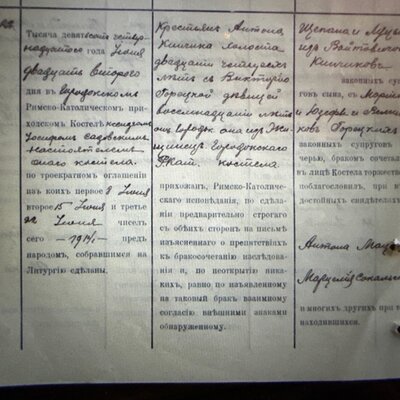 Тысяча девятьсот четыр-
надцатого года Іюня
двадцать второго
дня в Городокскомъ
Римско-Католическомъ при-
ходскомъ Костелѣ ксендзомъ
Іосифомъ Садовскимъ
настоятелемъ
онаго костела.
по троекратном оглашеніи
изъ коихъ первое 8 Іюня
второе 15 Іюня и третье
22 Іюня чиселъ
сего —1914— предъ
народомъ, собравшимся на
Литургію сдѣланы.
Крестьян Антона
Клингка холоста
двадцати четырехъ
лѣтъ с Викторію
Гороцкой дѣвицей
восемнадцати лѣтъ
онъ Городок она изъ
Городокского
Р-кат. костела
прихожан, Римско-Католичес-
каго исповѣданія, по сдѣ-
ланіи предварительно строгаго
съ обѣихъ сторонъ на письмѣ
изъясненнаго о препятствіяхъ
къ бракосочетанію изслѣдова-
нія и, по неоткрытіи ника-
кихъ, равно по изъявленному
на таковый бракъ взаимному
согласію внѣшними знаками
обнаруженному.
Щепана и
изъ
законныхъ суп-
говъ сына, съ
и Іозефы и
Гороцкихъ
законныхъ супругов
черью, бракомъ сочетал
въ лицѣ Костела торжеств
поблагословилъ, при
достойныхъ свидѣтелях
Антона
и многихъ другихъ при т
находившихся.